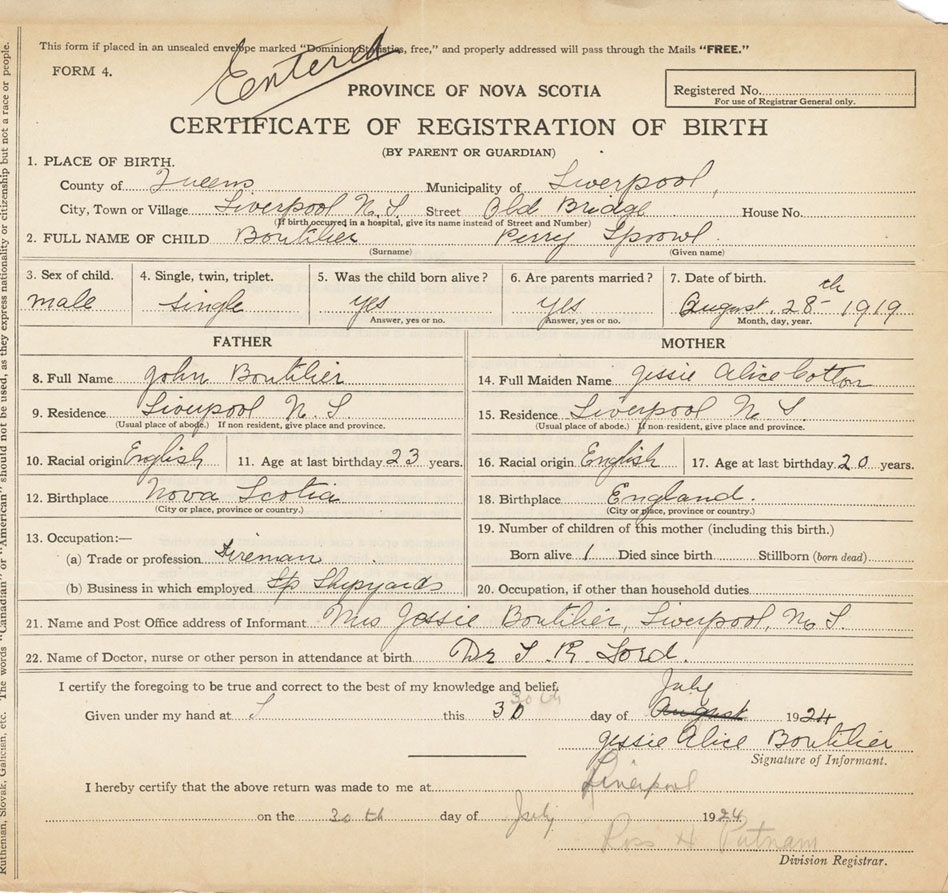 This form if placed in an unsealed envelope marked "Dominion Statistics, free," and properly addressed will pass through the Mails "FREE."
Entered
FORM 4.
PROVINCE OF NOVA SCOTIA
Registered No.
For use of Registrar General only.
CERTIFICATE OF REGISTRATION OF BIRTH
(BY PARENT OR GUARDIAN)
1. PLACE OF BIRTH.
County of Queens Municipality of Liverpool,
City, Town or Village Liverpool N.S. Street Old Bridge House No.
(If birth occured in a hospital, give its name instead of Street and Number)
2. FULL NAME OF CHILD Boutilier Perry Sprowl
(Surname) (Given name)
3. Sex of child. 4. Single, twin, triplet. 5. Was the child born alive? 6. Are parents married? 7. Date of birth.
male single yes yes August 28th 1919
Answer, yes or no. Answer, yes or no. Month, day, year.
FATHER MOTHER
8. Full Name John Boutilier 14. Full Maiden Name Jessie Alice Cotton
9. Residence Liverpool N.S 15. Residence Liverpool N S
(Usual place of abode.) If non resident, give place and province. (Usual place of abode.) If non-resident, give place and province.
10. Racial origin English 11. Age at last birthday 23 years. 16. Racial origin English 17. Age at last birthday 20 years.
12. Birthplace Nova Scotia 18. Birthplace England.
(City or place, province or country.) (City or place, province or country.)
13. Occupation:— 19. Number of children of this mother (including this birth.)
(a) Trade or profession Fireman Born alive 1 Died since birth Stillborn (born dead)
(b) Business in which employed Shipyards 20. Occupation, if other than household duties
21. Name and Post Office address of Informant Mrs Jessie Boutilier, Liverpool, N.S.
22. Name of Doctor, nurse or other person in attendance at birth Dr Ford.
I certify the foregoing to be true and correct to the best of my knowledge and belief.
30th July
Given under my hand at this 30 day of August 1924
Jessie Alice Boutilier
Signature of Informant.
I hereby certify that the above return was made to me at Liverpool
on the 30th day of July 1924
Ross H Putnam
Division Registrar.
Ruthenian, Slovak, Galician, etc. The words "Canadian" or "American" should not be used, as they express nationality or citizenship but not a race or people.